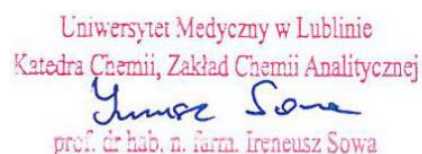 Uniwersytet Medyczny w Lublinie
Katedra Chemii, Zakład Chemii Analitycznej
Sowa
prof. dr hab. n. farm. Ireneusz Sowa